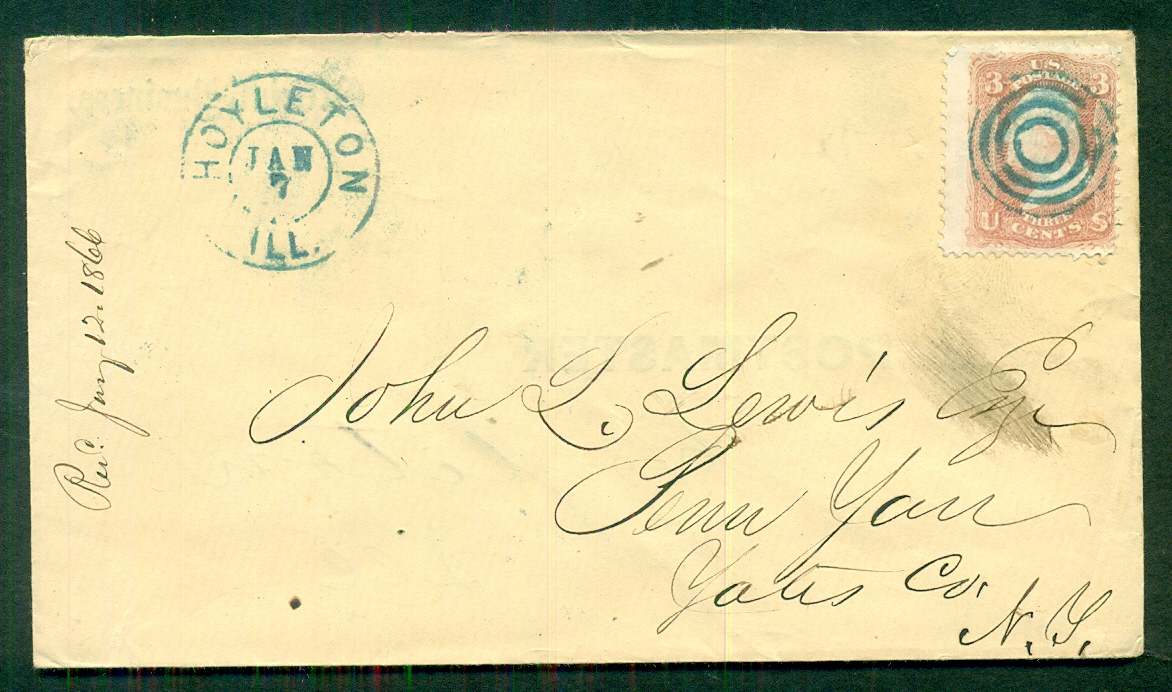 HOYLETON
JAN
7
ILL.
3 U.S. 3
POSTAGE
U THREE S
CENTS
Rec. Jany 12. 1866
John L. Lewis Esqr
Penn Yan
Yates Co.
N.Y.
POSTMASTER